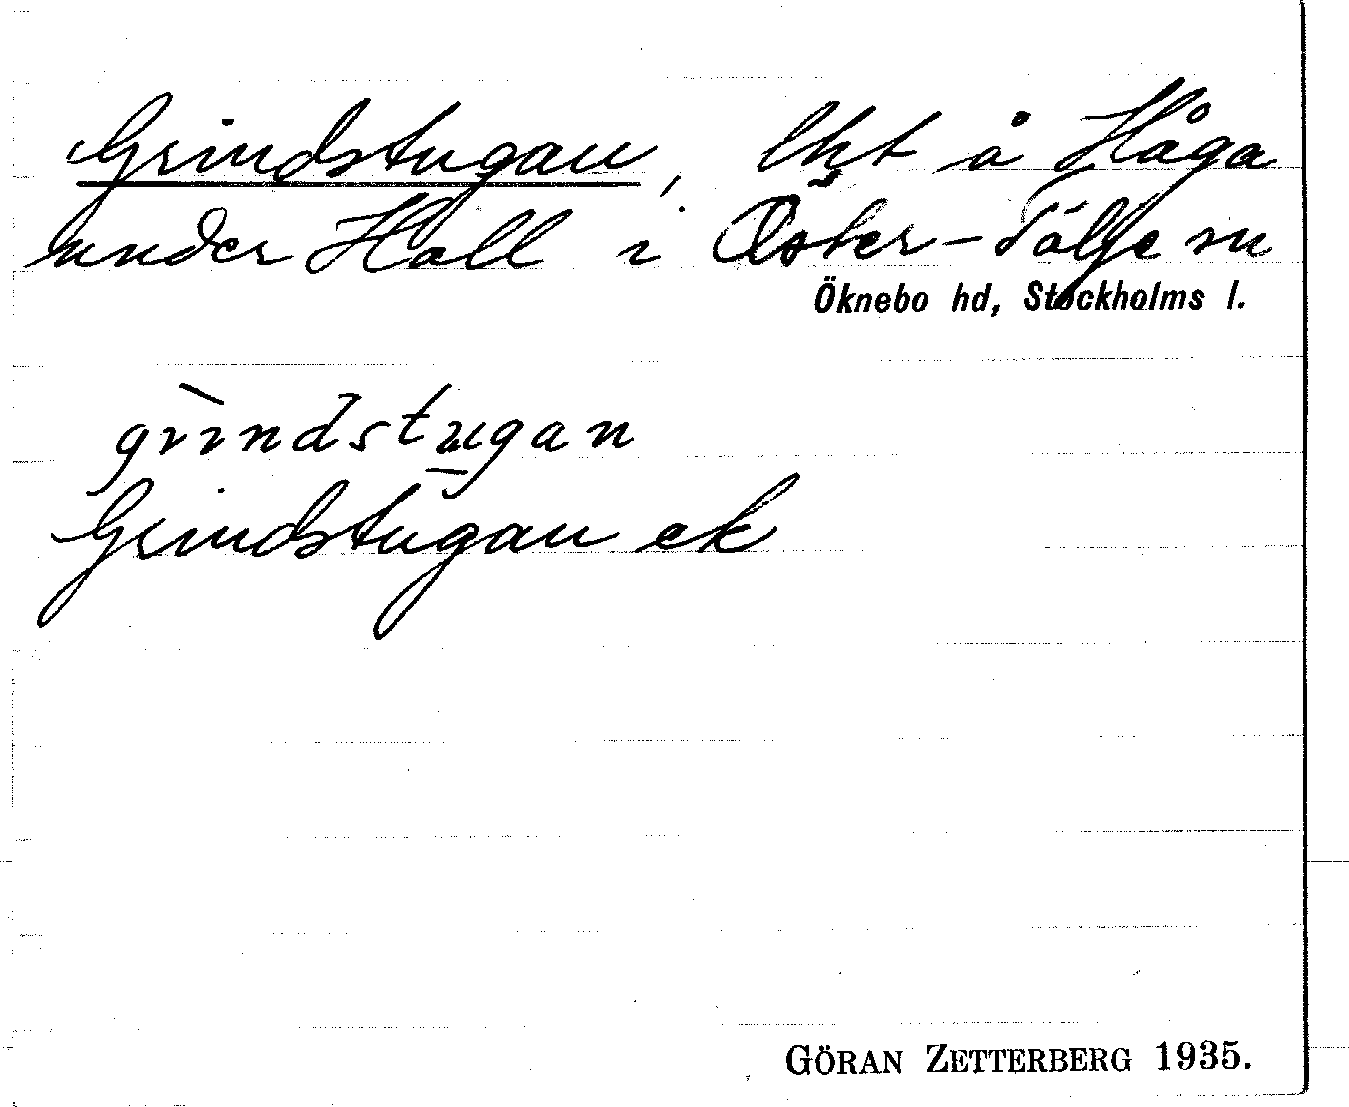 Grindstugan, lht å Håga
under Hall i Öster-Tälje sn
Öknebo hd, Stockholms l.
grindstugan
Grindstugan ek
GÖRAN ZETTERBERG 1935.